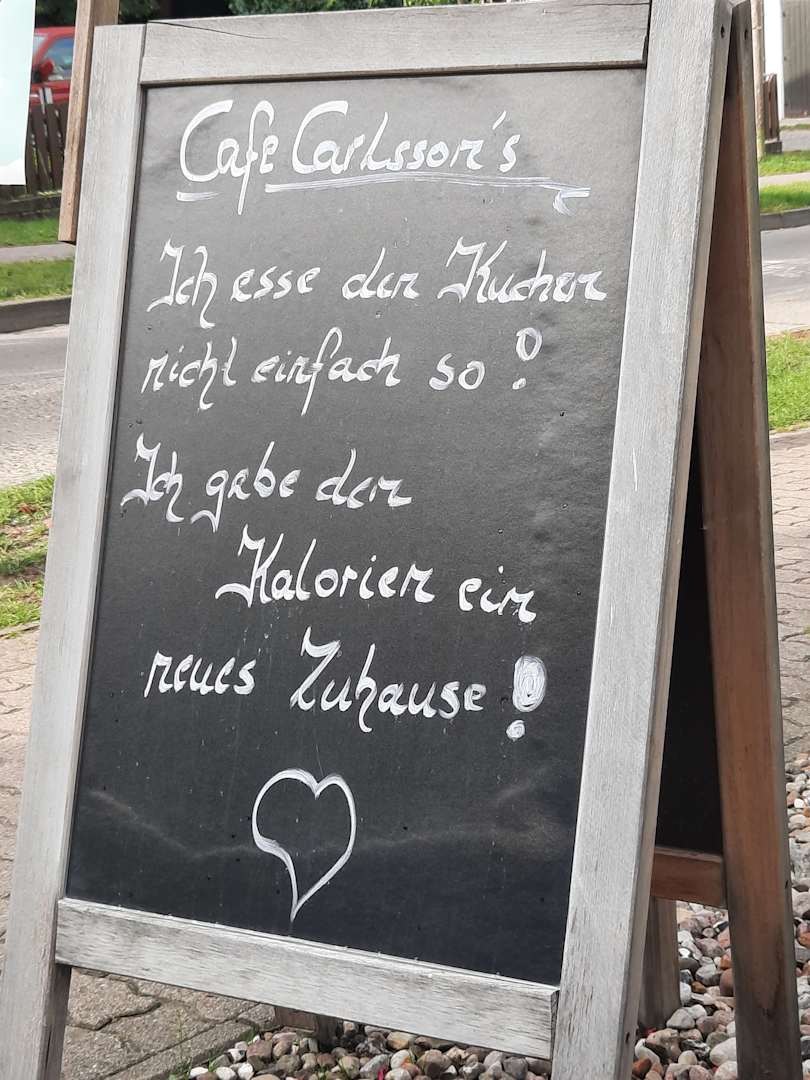 Cafe Carlsson's
Ich esse den Kuchen
nicht einfach so!
Ich gebe den
Kalorien ein
neues Zuhause!